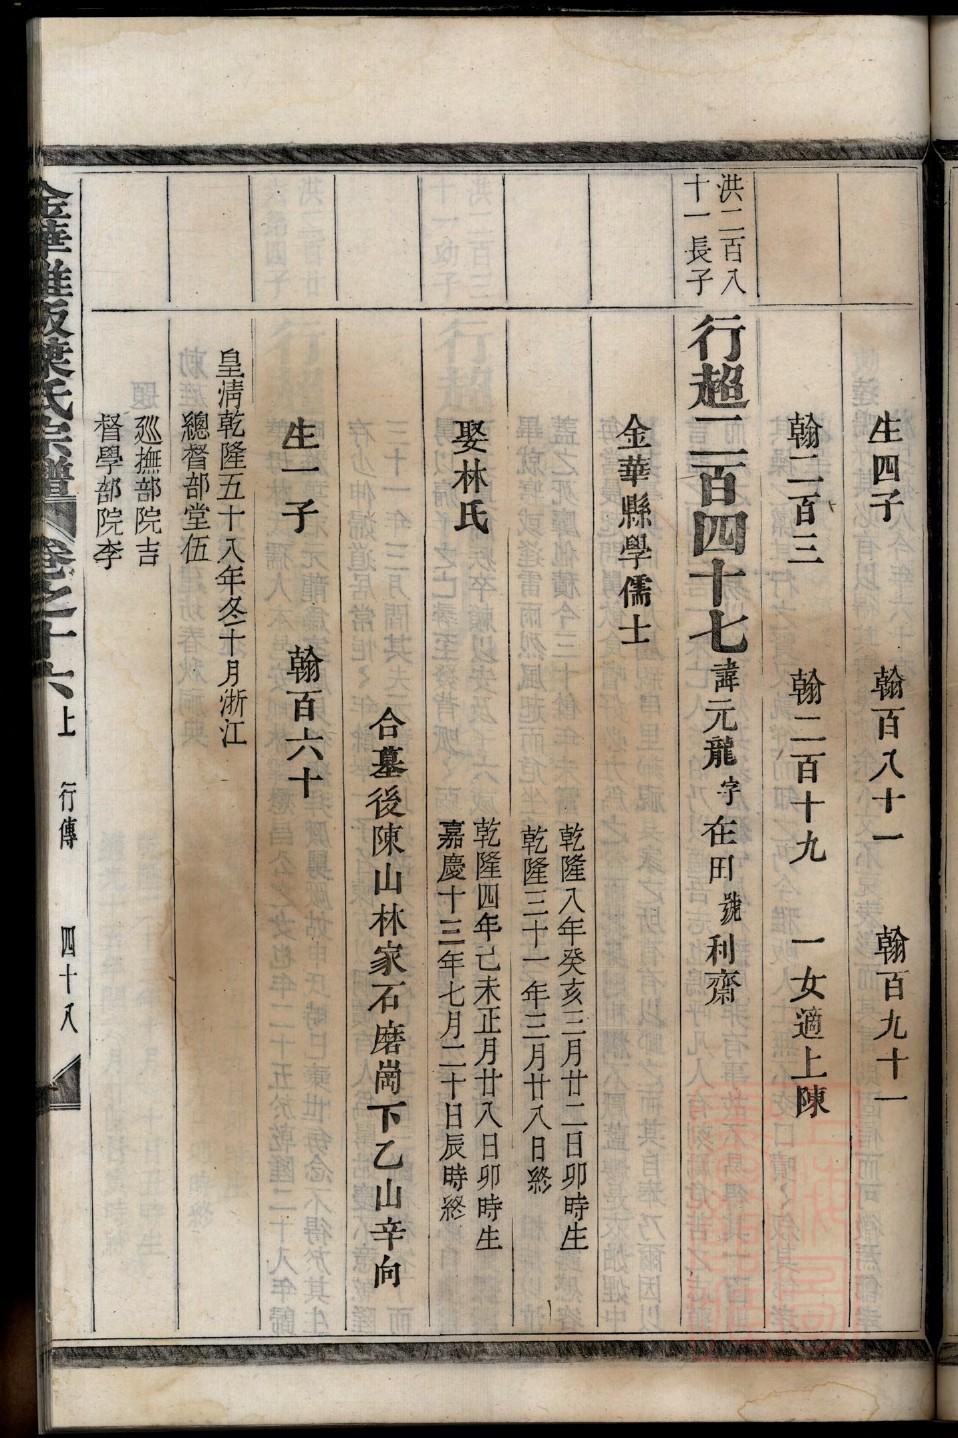 生四子　翰百八十一　翰百九十一
翰二百三　翰二百十九　一女適上陳
洪二百八
十一長子
行超二百四十七諱元龍字在田號利齋
金華縣學儒士
乾隆八年癸亥三月廿二日卯時生
乾隆三十一年三月廿八日終
娶林氏
乾隆四年己未正月廿八日卯時生
嘉慶十三年七月二十日辰時終
合墓後陳山林家石磨崗下乙山辛向
生一子　翰百六十
皇清乾隆五十八年冬十月浙江
總督部堂伍
廵撫部院吉
督學部院李
卷之十六上　行傳　四十八